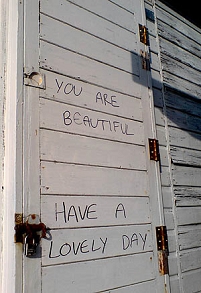 YOU ARE
BEAUTIFUL
HAVE A
LOVELY DAY